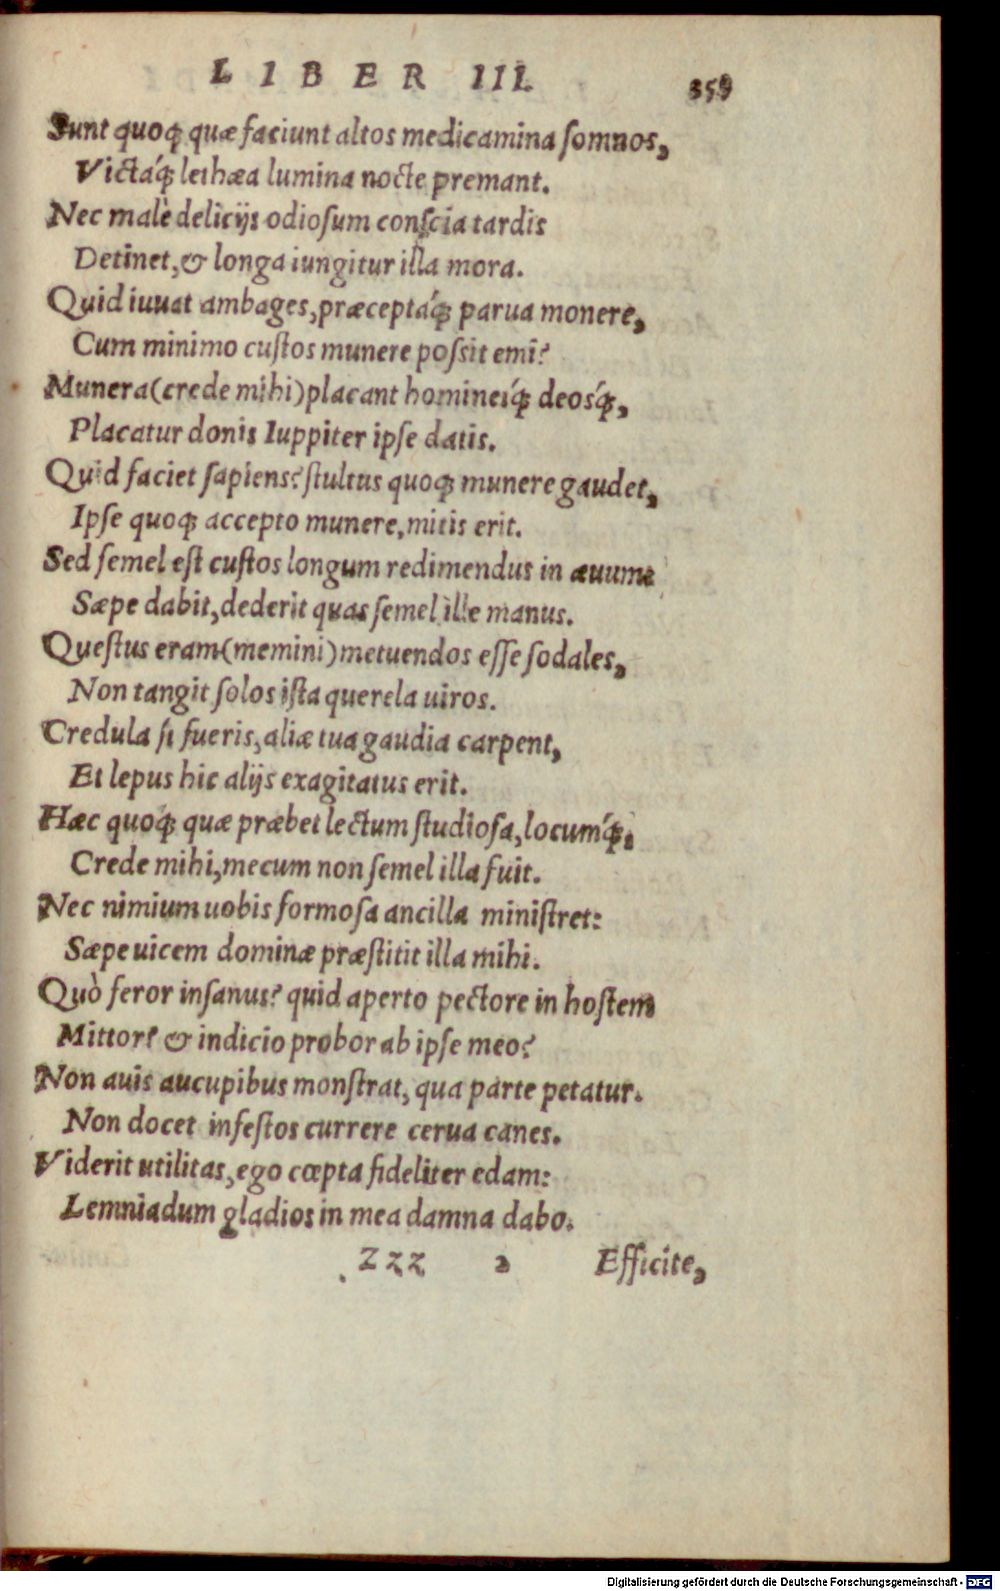 LIBER III. 359
Sunt quoq; quæ faciunt altos medicamina somnos,
Victáq; lethæa lumina nocte premant.
Nec malè delicijs odiosum conscia tardis
Detinet, & longa iungitur illa mora.
Quid iuuat ambages, præceptáq; parua monere,
Cum minimo custos munere possit emi?
Munera (crede mihi) placant homineśq; deośq;,
Placatur donis Iuppiter ipse datis.
Quid faciet sapiens? stultus quoq; munere gaudet,
Ipse quoq; accepto munere, mitis erit.
Sed semel est custos longum redimendus in æuum:
Sæpe dabit, dederit quas semel ille manus.
Questus eram (memini) metuendos esse sodales,
Non tangit solos ista querela uiros.
Credula si fueris, aliæ tua gaudia carpent,
Et lepus hic alijs exagitatus erit.
Hæc quoq; quæ præbet lectum studiosa, locumq́;,
Crede mihi, mecum non semel illa fuit.
Nec nimium uobis formosa ancilla ministret:
Sæpe uicem dominæ præstitit illa mihi.
Quò feror insanus? quid aperto pectore in hostem
Mittor? & indicio probor ab ipse meo?
Non auis aucupibus monstrat, qua parte petatur.
Non docet infestos currere cerua canes.
Viderit utilitas, ego cœpta fideliter edam:
Lemniadum gladios in mea damna dabo.
Zzz 2 Efficite,
Digitalisierung gefördert durch die Deutsche Forschungsgemeinschaft - DFG